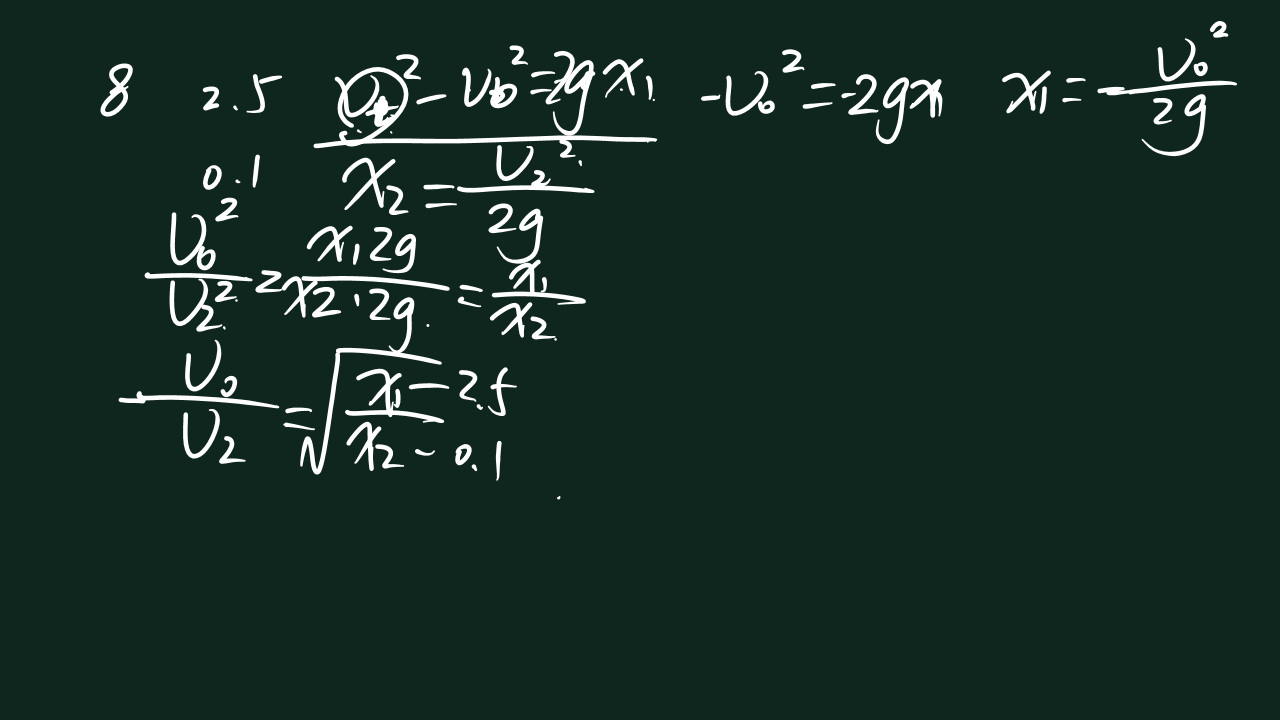 8 2.5 (v_t)² - v_0² = 2gx₁ -v_0² = -2gx₁ x₁ = v_0²/2g
0.1 x₂ = v₂²/2g
v_0²/v₂² = x₁2g/x2·2g = x₁/x₂
v_0/v₂ = √(x₁/x₂) - 2.5 - 0.1